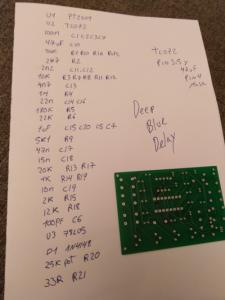 U1 PT2399
U2 TL072
100n C1 C2 C3 C4
47uF C10
10K R1 R10 R16 R12
2n2 C11 C12
10K R3 R7 R8 R11 R12
C13
1M R4
22n C14 C16
R5
22K R6
1uF C15 C20 C5 C7
5K1 R9
47n C17
15n C18
20K R13 R17
1K R14 R19
10n C19
2K R15
12K R18
100pF C6
U3 78L05
D1 1N4148
25K pot R20
33R R21
TL072
Pin 5
47uF
Pin 4
Deep
Blue
Delay